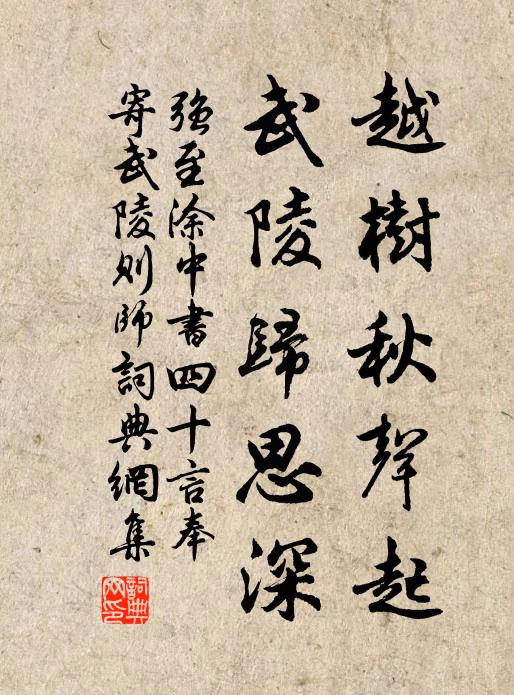 越樹秋聲起
武陵歸思深
強至涂中書四十言奉
寄武陵則師詞典網集
詞典網印